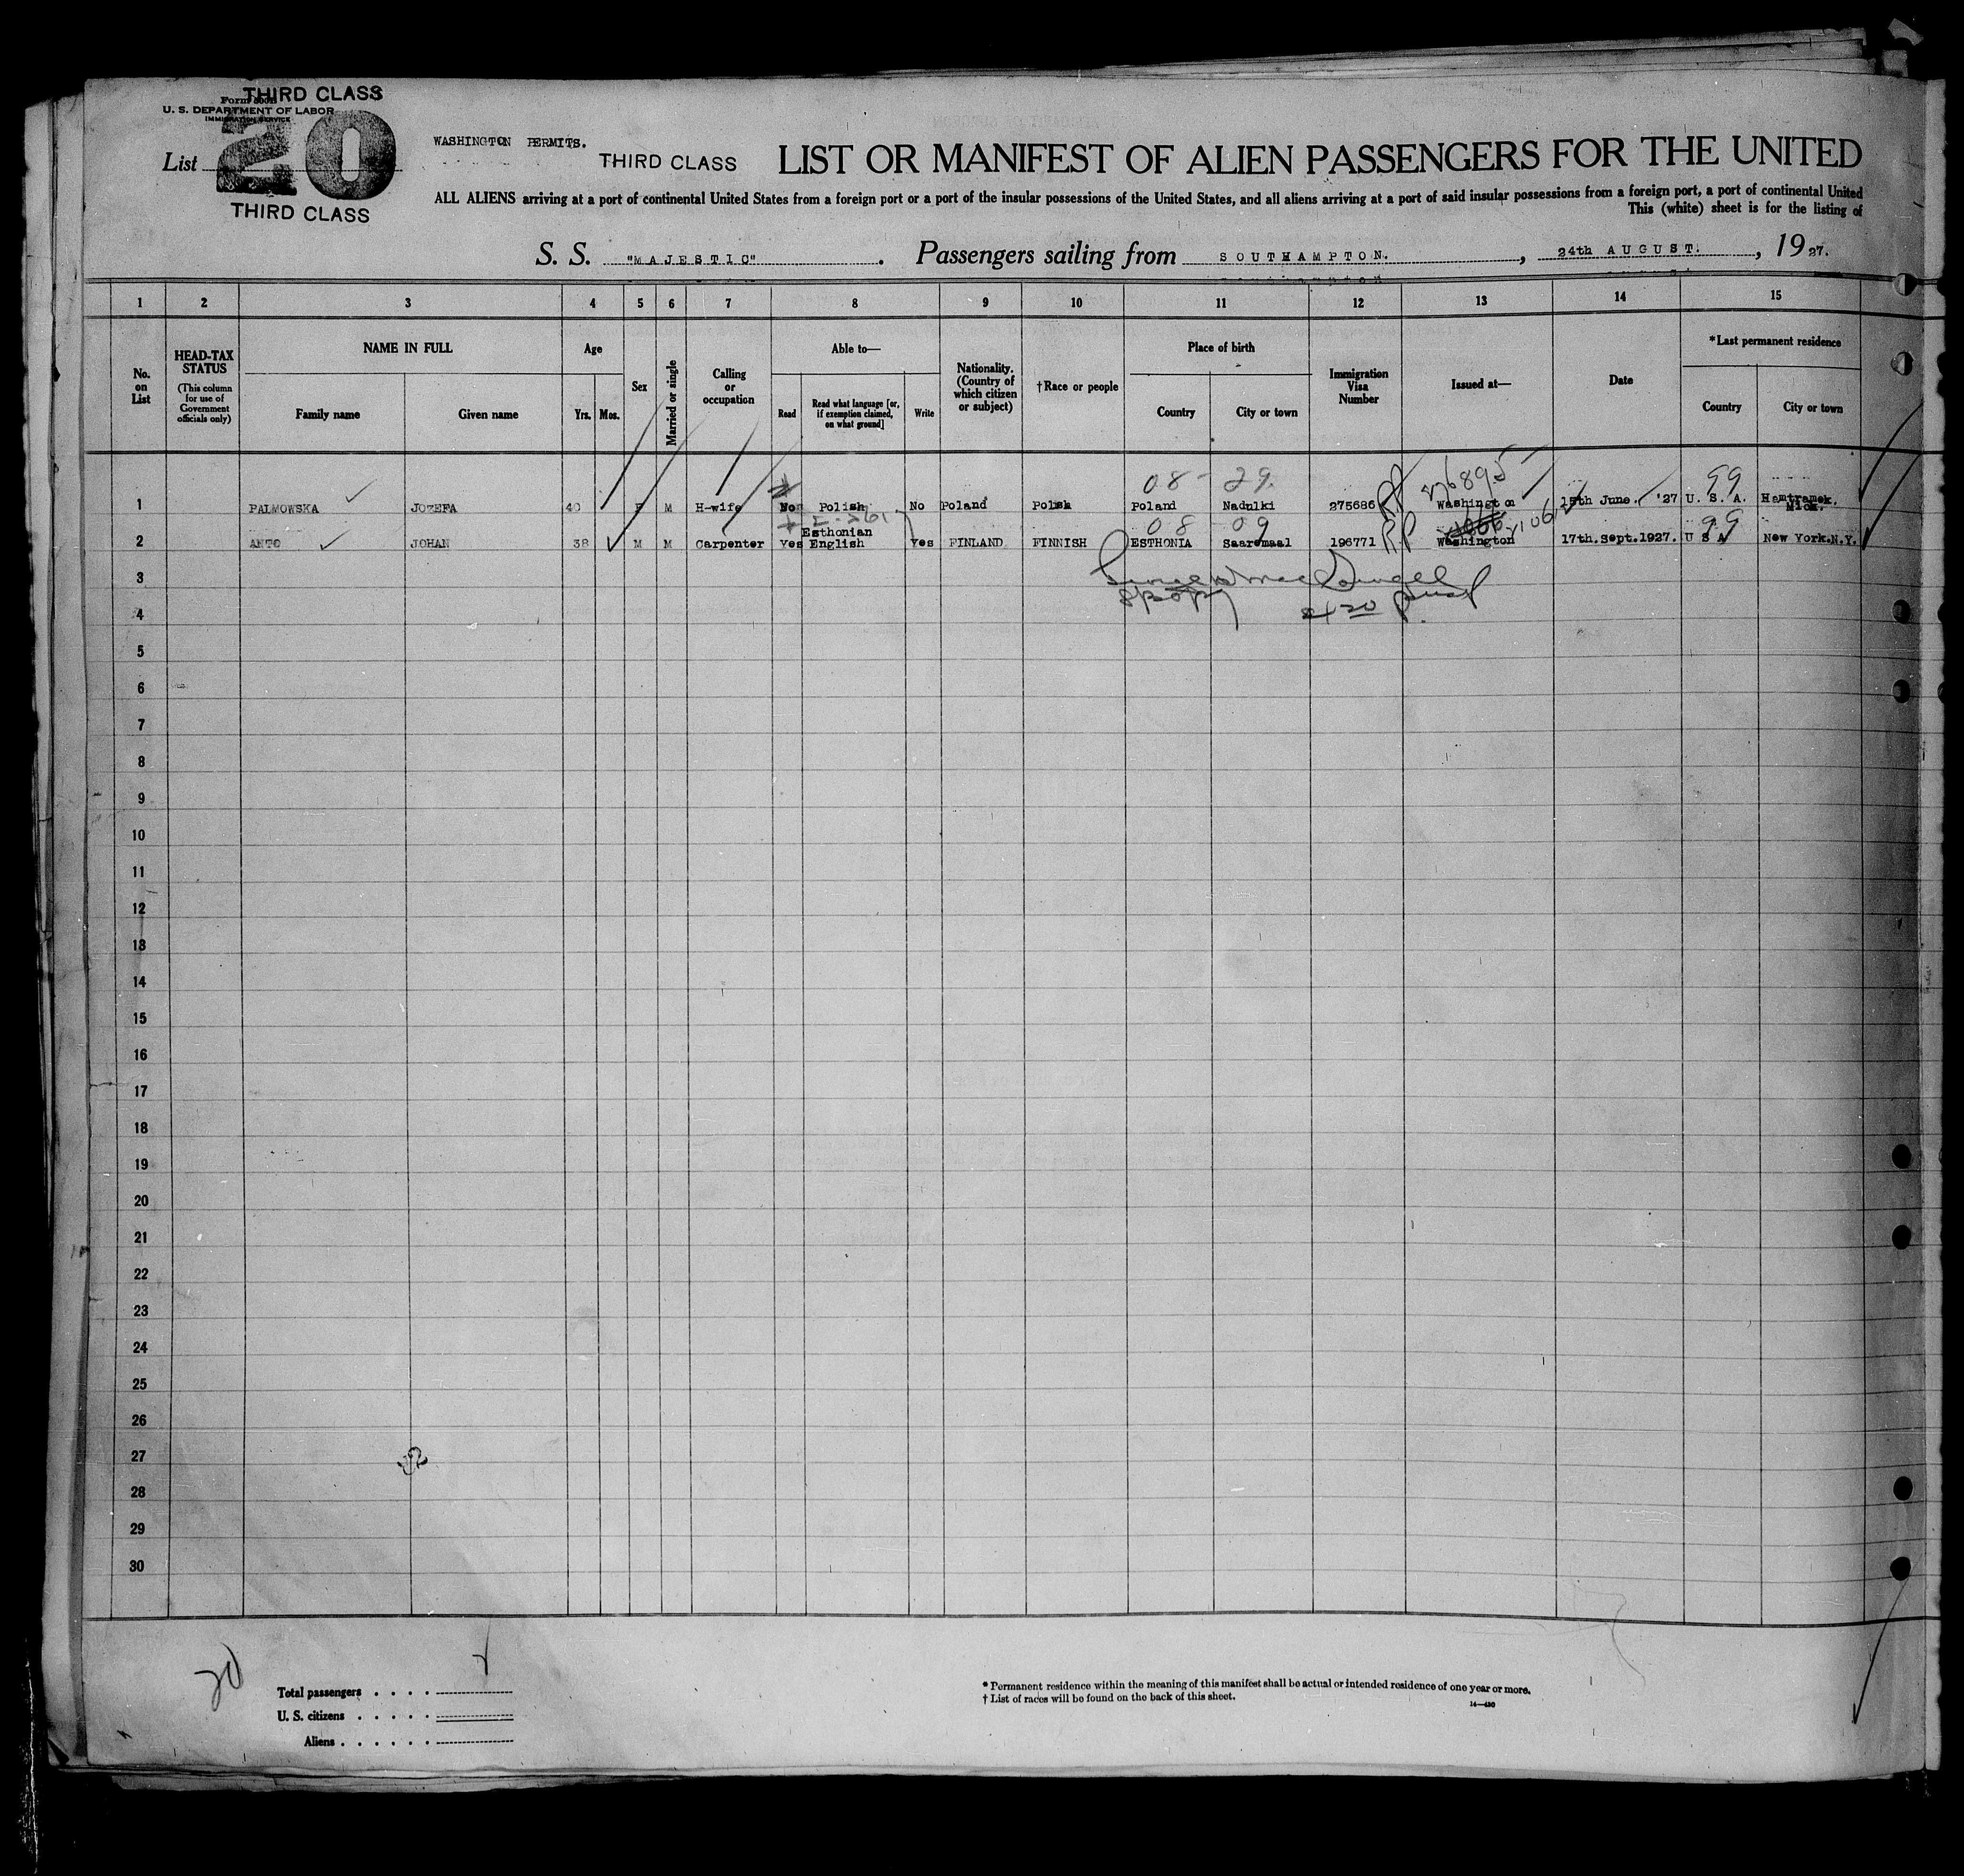 THIRD CLASS
U. S. DEPARTMENT OF LABOR
IMMIGRATION SERVICE
List 20
THIRD CLASS
WASHINGTON PERMITS.
THIRD CLASS
LIST OR MANIFEST OF ALIEN PASSENGERS FOR THE UNITED
ALL ALIENS arriving at a port of continental United States from a foreign port or a port of the insular possessions of the United States, and all aliens arriving at a port of said insular possessions from a foreign port, a port of continental United
This (white) sheet is for the listing of
S. S. "MAJESTIC". Passengers sailing from SOUTHAMPTON. , 24th AUGUST. , 1927.
1 2 3 4 5 6 7 8 9 10 11 12 13 14 15
No. on List
HEAD-TAX STATUS
(This column for use of Government officials only)
NAME IN FULL
Family name
Given name
Age
Yrs. Mos.
Sex
Married or single
Calling or occupation
Able to—
Read
Read what language [or, if exemption claimed, on what ground]
Write
Nationality. (Country of which citizen or subject)
†Race or people
Place of birth
Country
City or town
Immigration Visa Number
Issued at—
Date
*Last permanent residence
Country
City or town
08 - 29. 276895 99
1 PALMOWSKA JOZEFA 40 F M H-wife No Polish No Poland Polish Poland Nadulki 275686 RP Washington 15th June. '27 U. S. A. Hamtramck. Mich.
08 09 99
Esthonian
2 ANTO JOHAN 38 M M Carpenter Yes English Yes FINLAND FINNISH ESTHONIA Saaremaal 196771 RP Washington 17th.Sept.1927. U S A New York.N.Y.
3
4
5
6
7
8
9
10
11
12
13
14
15
16
17
18
19
20
21
22
23
24
25
26
27
28
29
30
20
Total passengers . . . .
U. S. citizens . . . . .
Aliens . . . . . .
* Permanent residence within the meaning of this manifest shall be actual or intended residence of one year or more.
† List of races will be found on the back of this sheet.
14—430